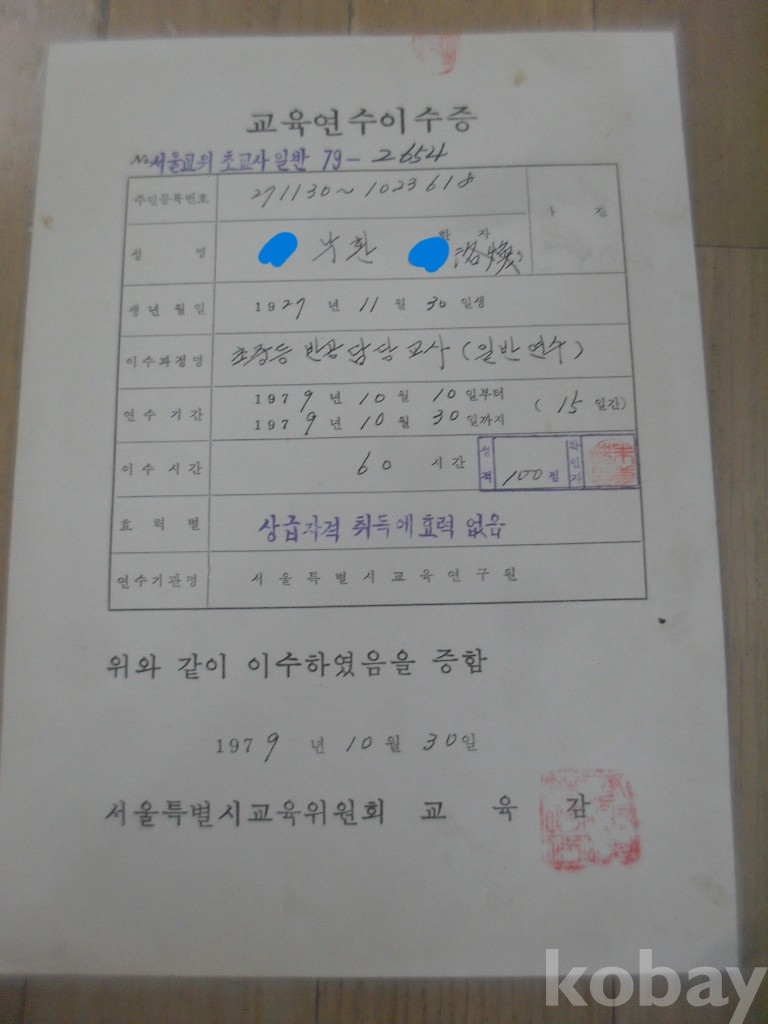 교육연수이수증
No 서울교위 초교사 일반 79-2654
주민등록번호 271130~1023618
성 명 낙환 한 자 洛煥
사 진
생년월일 1927년 11월 30일생
이수과정명 초중등 반공담당교사(일반연수)
연수기간 1979년 10월 10일부터
1979년 10월 30일까지 (15일간)
이수시간 60 시간 성적 100점 확인자
효력별 상급자격 취득에 효력 없음
연수기관명 서울특별시교육연구원
위와 같이 이수하였음을 증함
1979년 10월 30일
서울특별시교육위원회 교육감
kobay